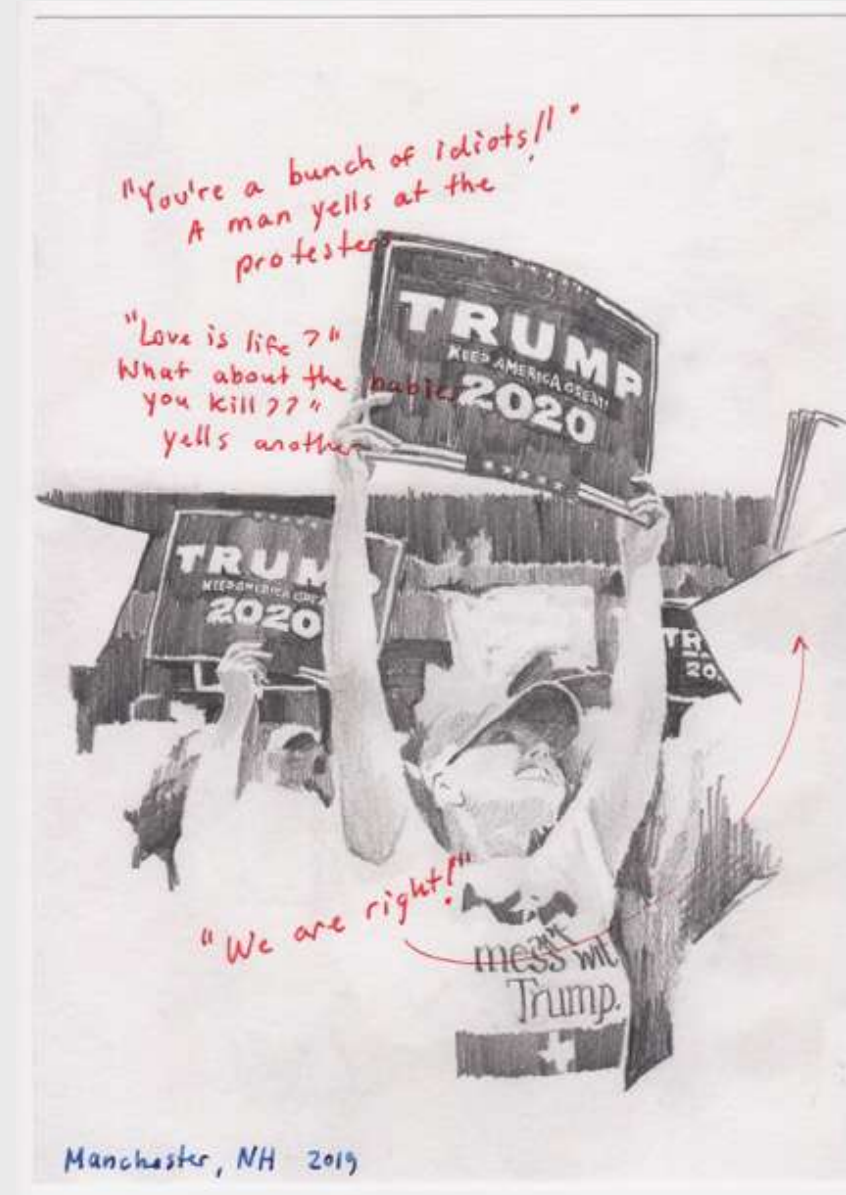 "You're a bunch of idiots!!"
A man yells at the
protesters
"Love is life?"
What about the babies
you kill??"
yells another
TRUMP
KEEP AMERICA GREAT!
2020
TRUMP
KEEP AMERICA GREA
2020
TR
20
"We are right!"
mess wit
Trump.
Manchester, NH 2019